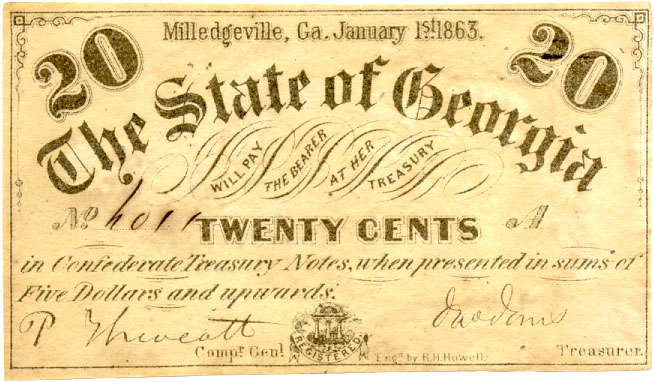 20 Milledgeville, Ga. January 1st 1863. 20
The State of Georgia
WILL PAY THE BEARER AT HER TREASURY
No TWENTY CENTS A
in Confederate Treasury Notes, when presented in sums of
Five Dollars and upwards.
P Thweatt
REGISTERED
Compr. Genl. Engd by R.H. Howell. Treasurer.